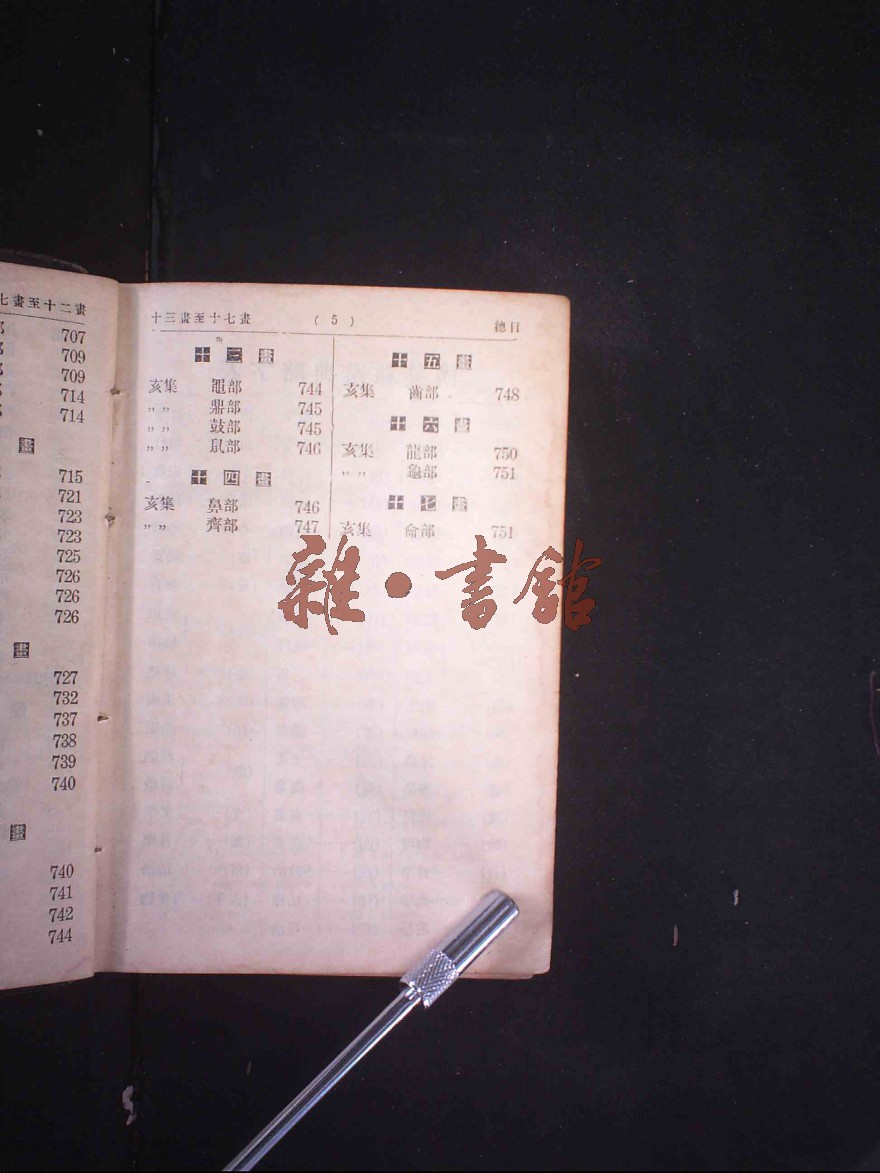 七畫至十二畫
707
709
709
714
714
畫
715
721
723
723
725
726
726
726
畫
727
732
737
738
739
740
畫
740
741
742
744
十三畫至十七畫 (5) 總目
十三畫
亥集 黽部 744
〃〃 鼎部 745
〃〃 鼓部 745
〃〃 鼠部 746
十四畫
亥集 鼻部 746
〃〃 齊部 747
十五畫
亥集 齒部 748
十六畫
亥集 龍部 750
〃〃 龜部 751
十七畫
亥集 龠部 751
雜·書館